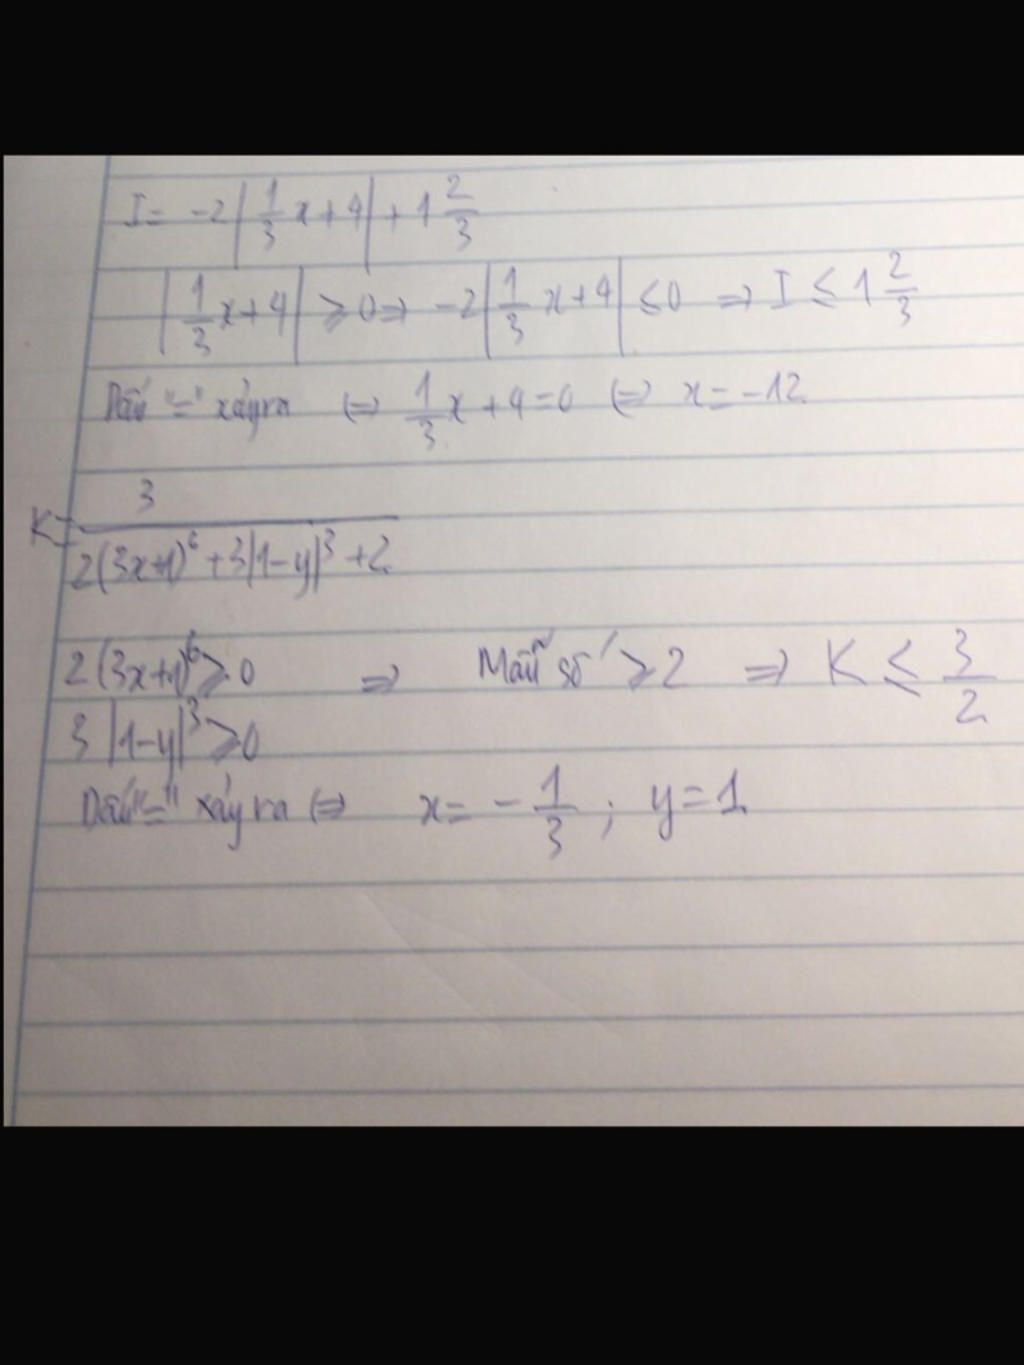 I = -2|1/3 x+4| + 1 2/3
|1/3 x+4| ⩾ 0 => -2|1/3 x+4| ≤ 0 => I ≤ 1 2/3
Dấu "=" xảy ra <=> 1/3 x + 4 = 0 <=> x = -12
K = 3/(2(3x+1)^6 + 3|1-y|^3 + 2)
2(3x+1)^6 ⩾ 0 => Mẫu số ⩾ 2 => K ≤ 3/2
3|1-y|^3 ⩾ 0
Dấu "=" xảy ra <=> x = -1/3 ; y = 1